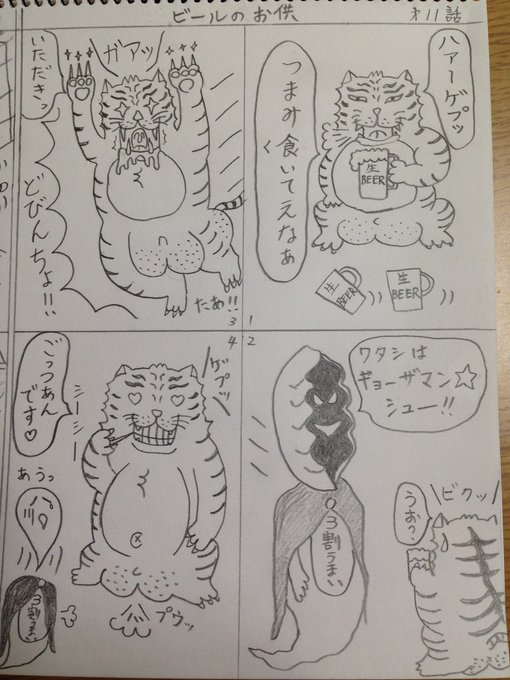 ビールのお供
才11話
ハァーゲプッ
つまみ食いてえなぁ
く
生
BEER
生
BEER
生
BEER
1
2
ワタシは
ギョーザマン☆
シュー!!
3割うまい
ビクッ
うおっ?
ガアッ
いただきっ
どびんちょ!!
たあ!!
3
4
ゲプッ
ごっつあん
です♡
シーシー
あうっ
プウッ
3割うまい